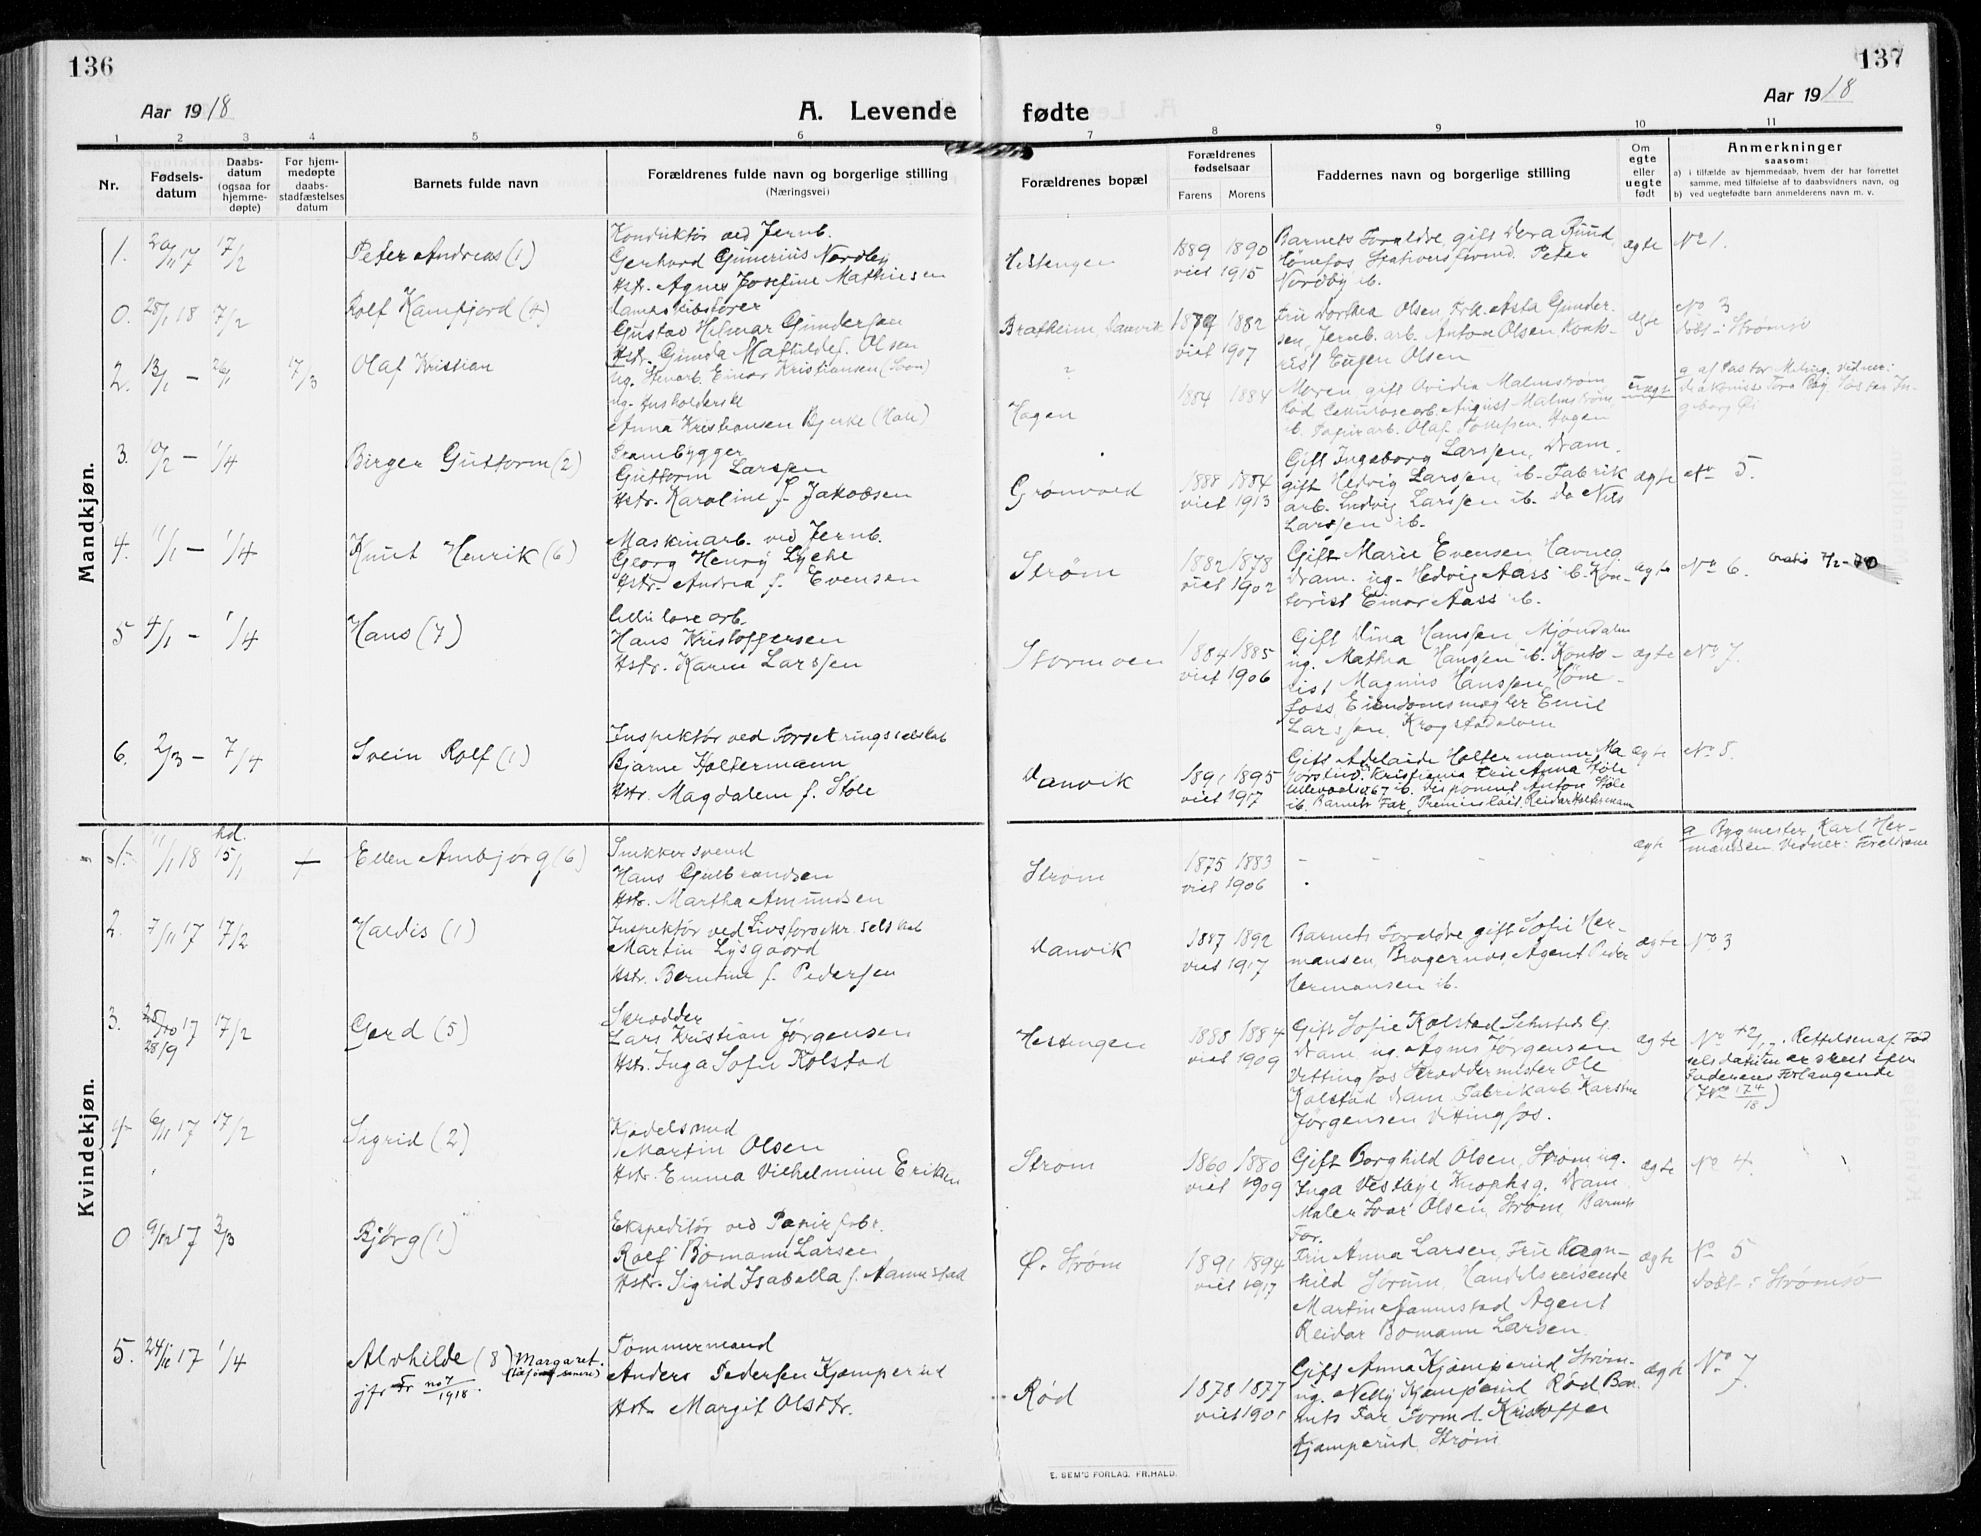 136
137
Aar 1918
A. Levende fødte
Aar 1918
1 2 3 4 5 6 7 8 9 10 11
Nr.
Fødsels-
datum
Daabs-
datum
(ogsaa for
hjemme-
døpte)
For hjem-
medøpte
daabs-
stadfæstelses
datum
Barnets fulde navn
Forældrenes fulde navn og borgerlige stilling
(Næringsvei)
Forældrenes bopæl
Forældrenes
fødselsaar
Farens Morens
Faddernes navn og borgerlige stilling
Om
egte
eller
uegte
født
Anmerkninger
saasom:
a) i tilfælde av hjemmedaab, hvem der har forrettet
samme, med tilføielse af to daabsvidners navn, og
b) ved uegtefødte barn anmelderens navn m. v.
Mandkjøn.
1. 20/11 17 17/2 Peter Andreas (1)
Konduktør ved Jernb.
Gerhard Gunerius Nordby
Hstr. Agnes Josefine Mathiesen
Hestengen
1889 1890
viet 1915
Barnets Forældre, gift Dora Ruud,
Hønefos Stationsfuldm. Peter
Nordby ib.
ægte No 1.
0. 28/1 18 17/2 Rolf Kamfjord (4)
Dampskibsfører
Gustav Hilmar Gundersen
Hstr. Gunda Mathilde f. Olsen
Bratheim, Danvik
1879 1882
viet 1907
Fru Dorthea Olsen, Frk. Asta Gunder-
sen, Jernb. arb. Anton Olsen, Kont-
rist Eugen Olsen
ægte No 3
Døbt i Strømsø
2. 13/1 — 26/1 17/3 Olaf Kristian
Ug. Stenarb. Einar Kristiansen
ug. Husholderske
Anna Kristiansen Bjerke (Hole)
?
Hagen
1884 1884
Moren gift Ovidia Malmstrøm
Celulosearb. August Malmstrøm
ib. Papirarb. Olaf Hagen
uægte
a af Pastor vidner:
3. 10/2 — 1/4 Birger Guttorm (2)
Guttorm Larssen
Hstr. Karoline f. Jakobsen
Grønvold
1888 1884
viet 1913
Gift Ingeborg Larssen, Dram.
gift Hedvig Larssen, ib. Fabrik
arb. Ludvig Larssen ib. do Nils
Larssen ib.
ægte No 5.
4. 11/1 — 1/4 Knut Henrik (6)
Maskinarb. ved Jernb.
Georg Henry Lyche
Hstr. Andrea f. Evensen
Strøm
1882 1878
viet 1902
Gift Marie Evensen Havneg
Dram. ug. Hedvig Aass ib. Kon-
torist Einar Aass ib.
ægte No 6.
5 4/1 — 1/4 Hans (7)
Cellulosearb.
Hans Kristoffersen
Hstr. Karen Larssen
Stormoen
1884 1885
viet 1906
Gift Dina Hanssen, Mjøndalen
ug. Mathea Hanssen ib. Konto-
rist Magnus Hanssen, Høne-
foss, Eiendomsmægler Emil
Larssen, Krogstadelven
ægte No 7.
6. 2/3 — 7/4 Svein Rolf (1)
Inspektør ved Forsikringsselskab
Bjarne Holtermann
Hstr. Magdalene f. Støle
Danvik
1891 1895
viet 1917
Gift Adelaide Holtermann, Ma
Kristiania Fru Anna Støle
Ullevaalsv. 67 ib. Disponent Anton Støle
ib. Barnets Far, Premierløit. Reidar Holtermann
ægte No 5.
Kvindekjøn.
1. 11/1 18 hd. 15/1 + Ellen Ambjørg (6)
Snikkersvend
Hans Gulbrandsen
Hstr. Martha Amundsen
Strøm
1875 1883
viet 1906
ægte
a Bygmester Karl Her-
mandsen Vidner: Forældrene
2. 7/11 17 17/2 Haldis (1)
Inspektør ved Livsforsikr. selskab
Martin Lysgaard
Hstr. Berntine f. Pedersen
Danvik
1887 1892
viet 1917
Barnets Forældre gift Sofie Her-
mansen, Bragernæs, Agent Peder
Hermansen ib.
ægte No 3
3. 25/10 17 17/2 Gerd (5)
28/9
Skrædder
Lars Kristian Jørgensen
Hstr. Inga Sofie Kolstad
Hestengen
1888 1884
viet 1909
Gift Sofie Kolstad Schulteds G.
Dram, ug. Agnes Jørgensen
Vittingfos Skræddermester Ole
Kolstad Dram Fabrikarb Karsten
Jørgensen Vittingfos.
ægte
Rettelsen af Fød
selsdatoen er skeet efter
Faderens Forlangende
(JNo 174/18)
4 6/11 17 17/2 Sigrid (2)
Kjedelsmed
Martin Olsen
Hstr. Emma Vilhelmine Eriksen
Strøm
1860 1880
viet 1909
Gift Borghild Olsen, Strøm ug.
Inga Vestbye Knophsg. Dram
Maler Ivar Olsen, Strøm, Barnets
Far.
ægte No 4.
0 9/12 17 3/3 Bjørg (1)
Ekspeditør ved Papirfabr.
Rolf Bomann Larsen
Hstr. Sigrid Isabella f. Aamestad
Ø. Strøm
1891 1894
viet 1917
Fru Anna Larsen, Fru Ragn-
hild Sørum, Handelsreisende
Martin Aamestad Agent
Reidar Bomann Larsen
ægte No 5
Døbt i Strømsø
5. 24/11 17 1/4 Alvhilde (8) Margaret.
(tilføiet senere)
jfr. Fr no 7/1918.
Tømmermand
Anders Pedersen Kjemperud
Hstr. Margit Olsdtr.
Rød
1878 1877
viet 1901
Gift Anna Kjemperud Strøm-
ug. Nelly Kjemperud, Rød, Bar-
nets Far, Formd. Kristoffer
Kjemperud, Strøm
ægte No 7.
E. SEM'S FORLAG, FR.HALD.